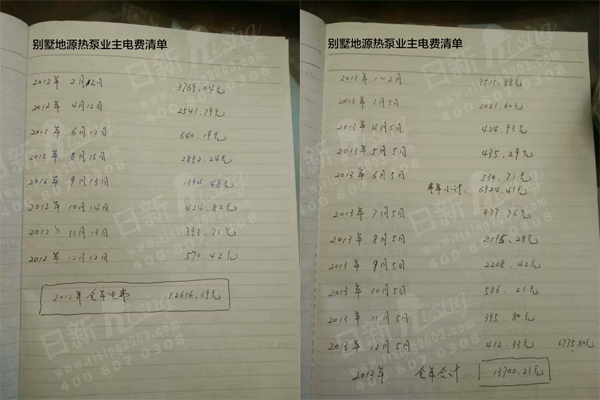 别墅地源热泵业主电费清单
2012年 2月12日 3769.04元
2012年 4月12日 2541.79元
2012年 6月13日 640.19元
2012年 8月15日 2882.24元
2012年 9月13日 1394.48元
2012年 10月14日 424.82元
2012年 11月13日 393.71元
2012年 12月12日 570.42元
2012年全年电费 12616.69元
日新 rising
www.rising2003.com
400 8070308
别墅地源热泵业主电费清单
2013年 1-2月 3511.88元
2013年 1月5日 2021.60元
2013年 4月5日 424.93元
2013年 5月5日 435.29元
2013年 6月5日 530.71元
半年小计: 6924.41元
2013年 7月5日 977.76元
2013年 8月5日 2195.28元
2013年 9月5日 2208.42元
2013年 10月5日 586.21元
2013年 11月5日 395.80元
2013年 12月5日 412.33元 6775.80元
2013年 全年合计 13700.21元
日新 rising
www.rising2003.com
400 8070308